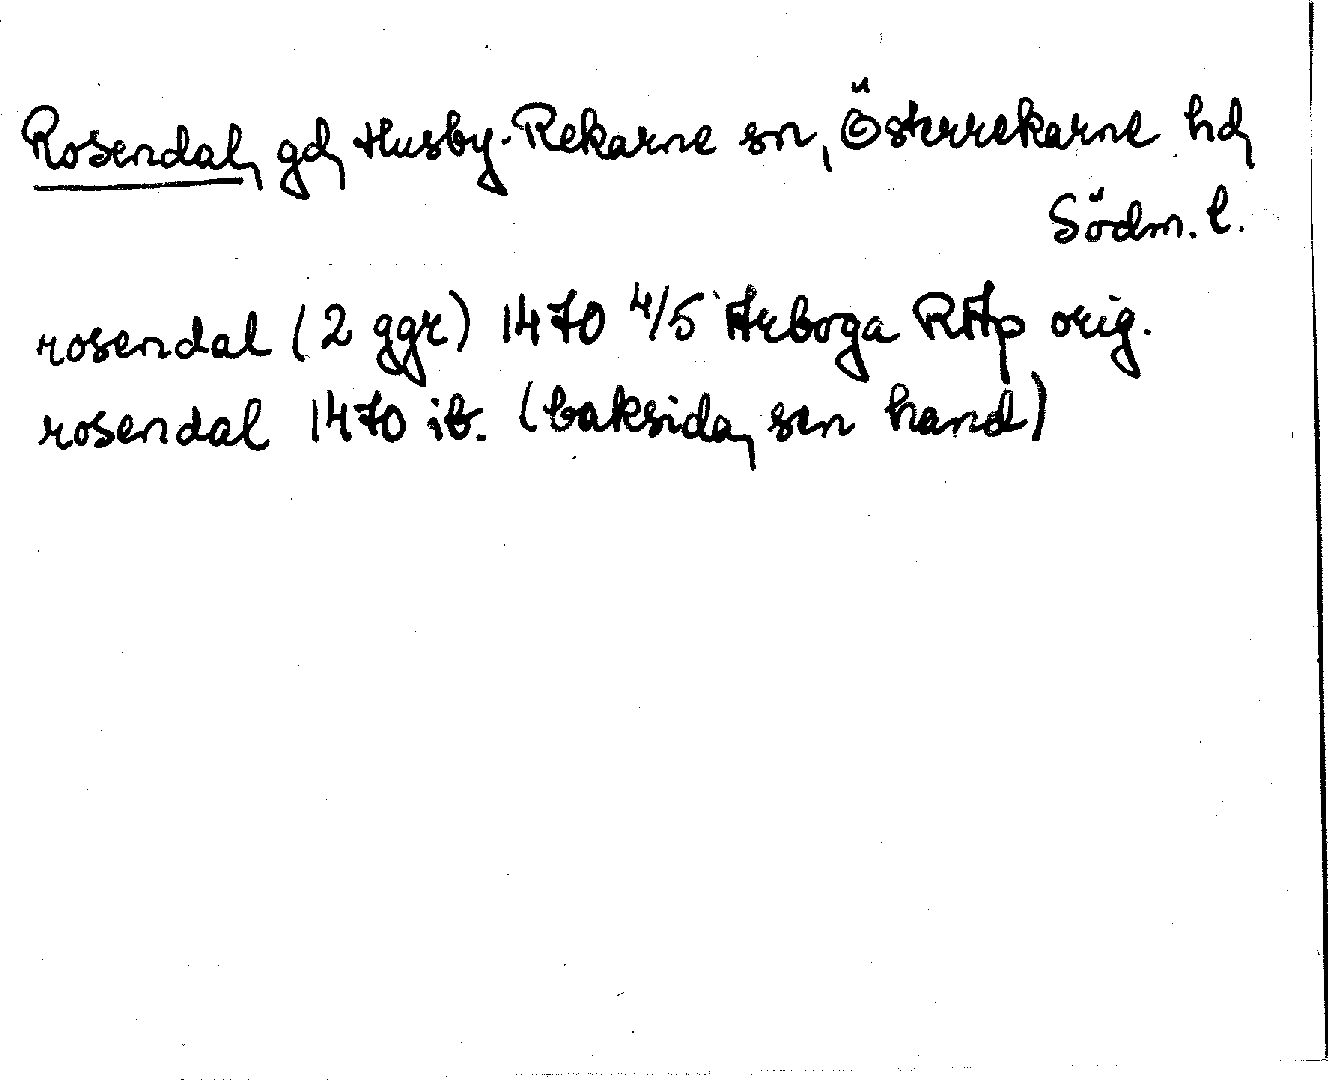 Rosendal, gd, Husby-Rekarne sn, Österrekarne hd,
Södm. l.
rosendal (2 ggr) 1470 4/5 Arboga RAp orig.
rosendal 1470 ib. (baksida, sen hand)